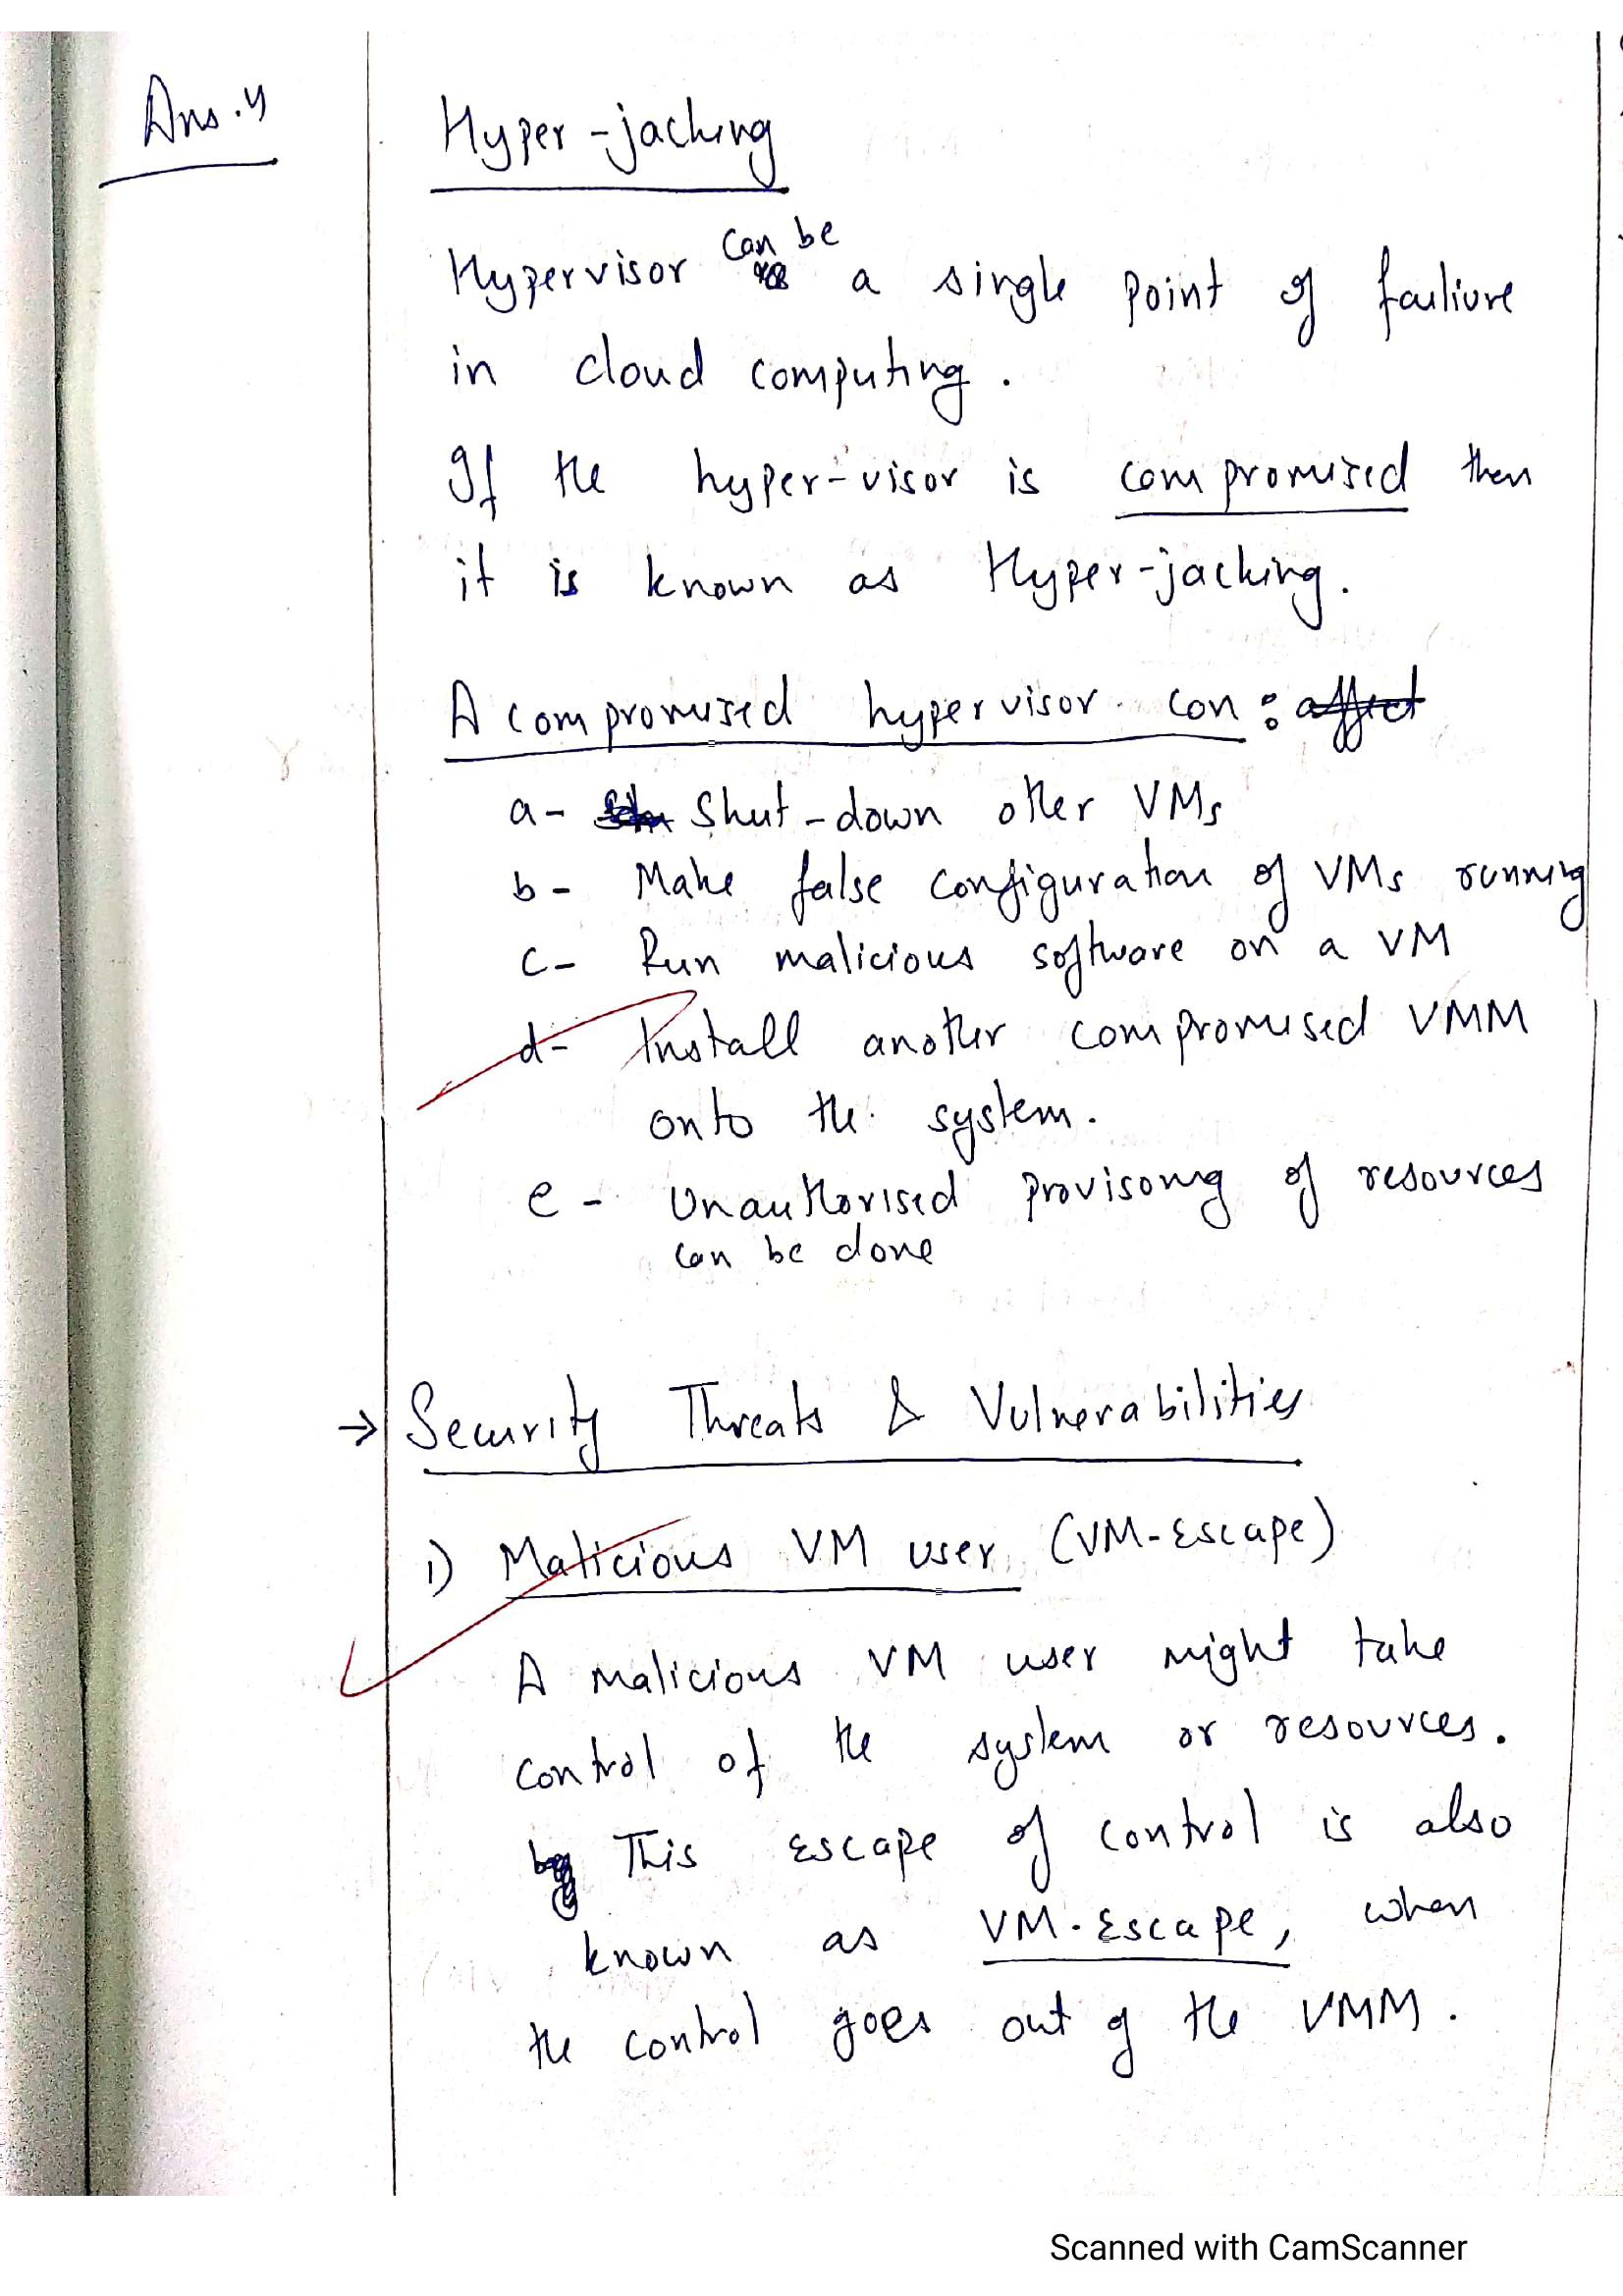 Ans.4
Hyper-jacking
Hypervisor can be a single point of failiure
in cloud computing.
If the hyper-visor is compromised then
it is known as Hyper-jacking.
A compromised hypervisor can: affect
a- Shut-down other VMs
b- Make false configuration of VMs running
c- Run malicious software on a VM
d- Install another compromised VMM
onto the system.
e- Unauthorised provisoing of resources
can be done
→ Security Threats & Vulnerabilities
1) Malicious VM user (VM-Escape)
A malicious VM user might take
control of the system or resources.
This escape of control is also
known as VM-Escape, when
the control goes out of the VMM.
Scanned with CamScanner